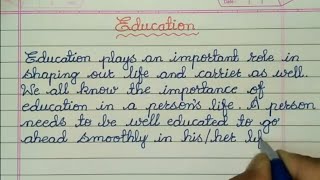 Education
Education plays an important role in
shaping our life and carrier as well.
We all know the importance of
education in a person's life. A person
needs to be well educated to go
ahead smoothly in his/her lif